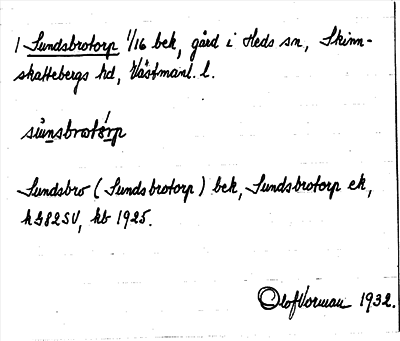 1 Sundsbrotorp 1/16 bek, gård i Heds sn, Skinn-
skattebergs hd, Västmanl. l.
sùnsbrotórp
Sundsbro (Sundsbrotorp) bek, Sundsbrotorp ek,
k G82SV, kb 1925.
Olof Vorman 1932.